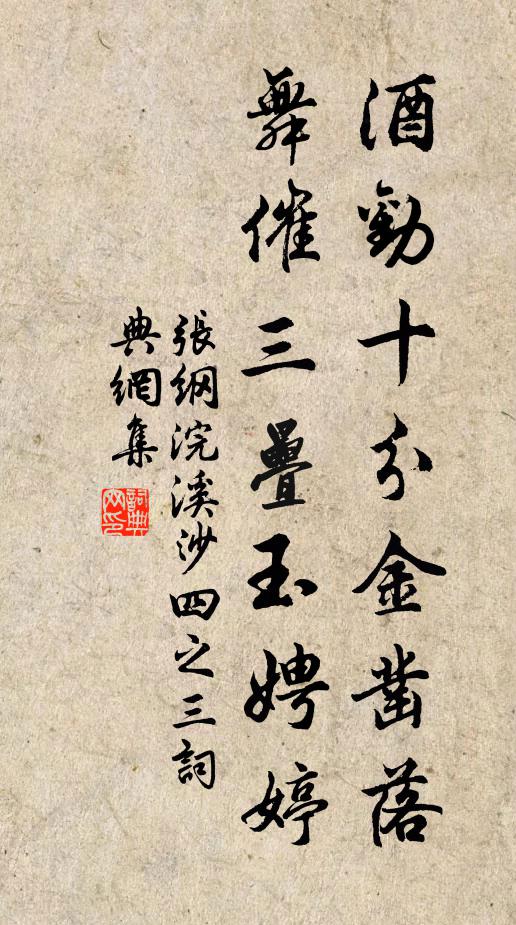 酒勸十分金凿落
舞催三疊玉娉婷
張纲浣溪沙四之三詞
典網集
詞典网印